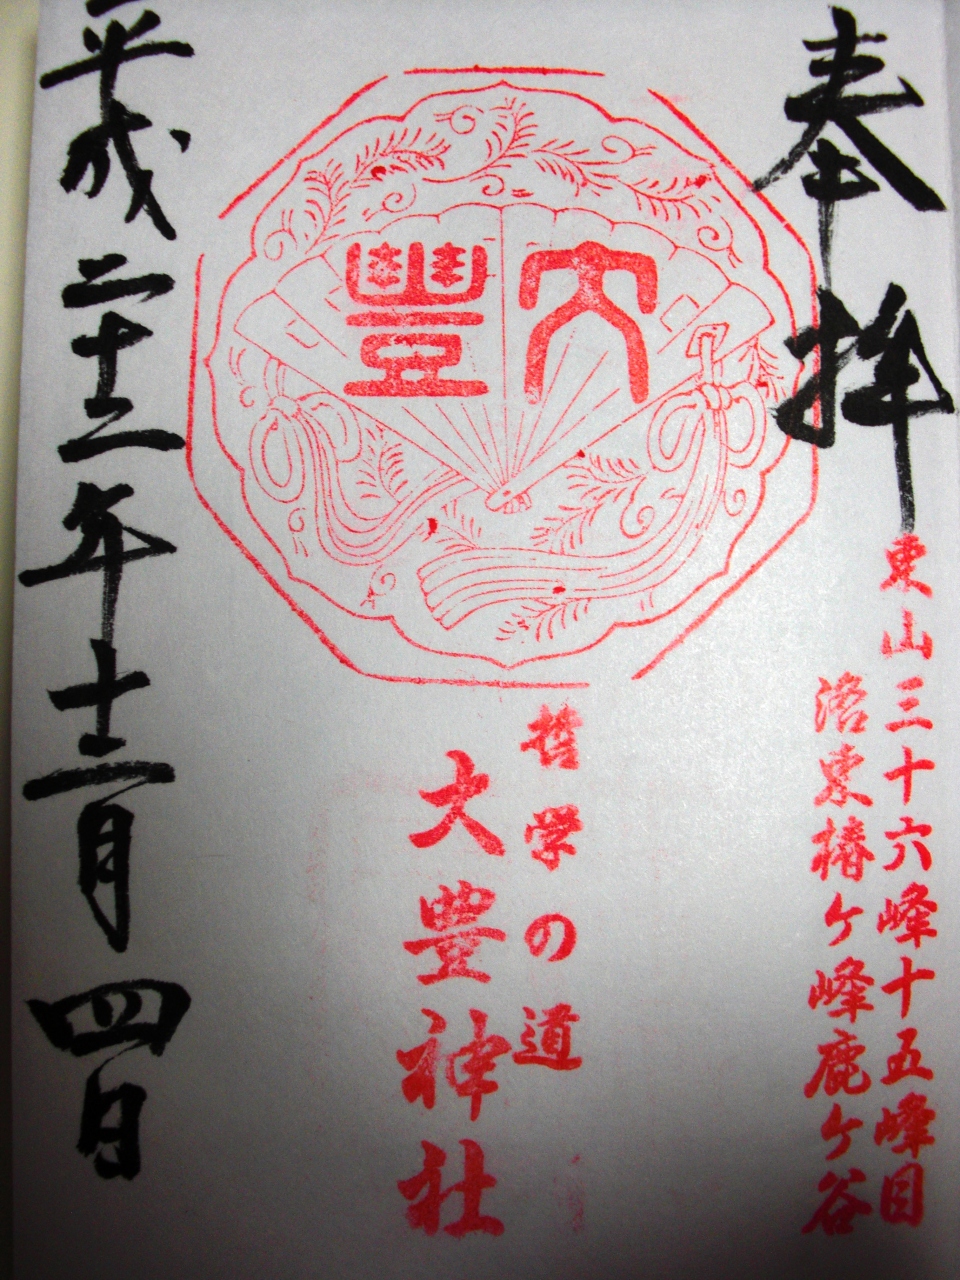 奉拝
東山三十六峰十五峰目
洛東椿ケ峰鹿ケ谷
大豐
哲学の道
大豊神社
平成二十二年十二月四日